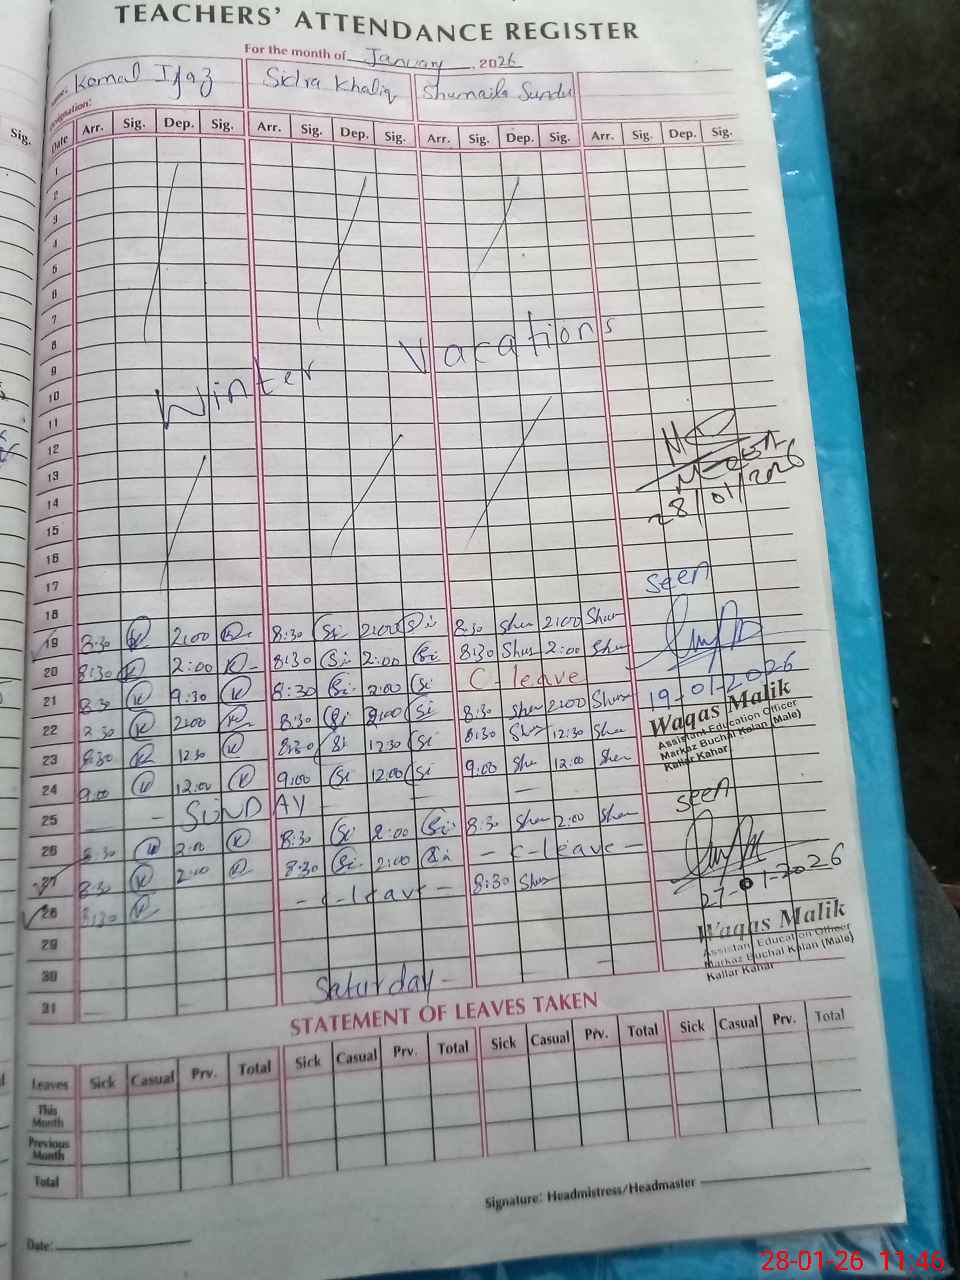 TEACHERS' ATTENDANCE REGISTER
For the month of January, 2026
Komal Ijaz Sidra Khaliq Shumaila Sundu
Sig. Date Arr. Sig. Dep. Sig. Arr. Sig. Dep. Sig. Arr. Sig. Dep. Sig. Arr. Sig. Dep. Sig.
1
2
3
4
5
6
7
8
9
Winter Vacations
10
11
12
13
14
28/01/2026
15
16
17
seen
18
19 8:30 2:00 8:30 Si 2:00 Si 8:30 Shu 2:00 Shu
20 8:30 K 2:00 K 8:30 Si 2:00 Si 8:30 Shu 2:00 Shu
21 8:30 K 9:30 K 8:30 Si 2:00 Si C-leave
19-01-2026
22 8:30 K 2:00 K 8:30 Si 2:00 Si 8:30 Shu 2:00 Shu
Waqas Malik
Assistant Education Officer
Markaz Buchal Kalan (Male)
Kallar Kahar
23 8:30 K 12:30 K 8:30 Si 12:30 Si 8:30 Shu 12:30 Shu
24 9:00 K 12:00 K 9:00 Si 12:00 Si 9:00 Shu 12:00 Shu
25 - - SUNDAY - - -
seen
26 8:30 K 2:00 K 8:30 Si 2:00 Si 8:30 Shu 2:00 Shu
27 8:30 K 2:00 K 8:30 Si 2:00 Si - C-leave -
28 8:30 K - C-leave - 8:30 Shu
27-01-2026
Waqas Malik
Assistant Education Officer
Markaz Buchal Kalan (Male)
Kallar Kahar
29
30
31 Saturday
STATEMENT OF LEAVES TAKEN
Leaves Sick Casual Prv. Total Sick Casual Prv. Total Sick Casual Prv. Total Sick Casual Prv. Total
This Month
Previous Month
Total
Signature: Headmistress/Headmaster
Date:
28-01-26 11:46